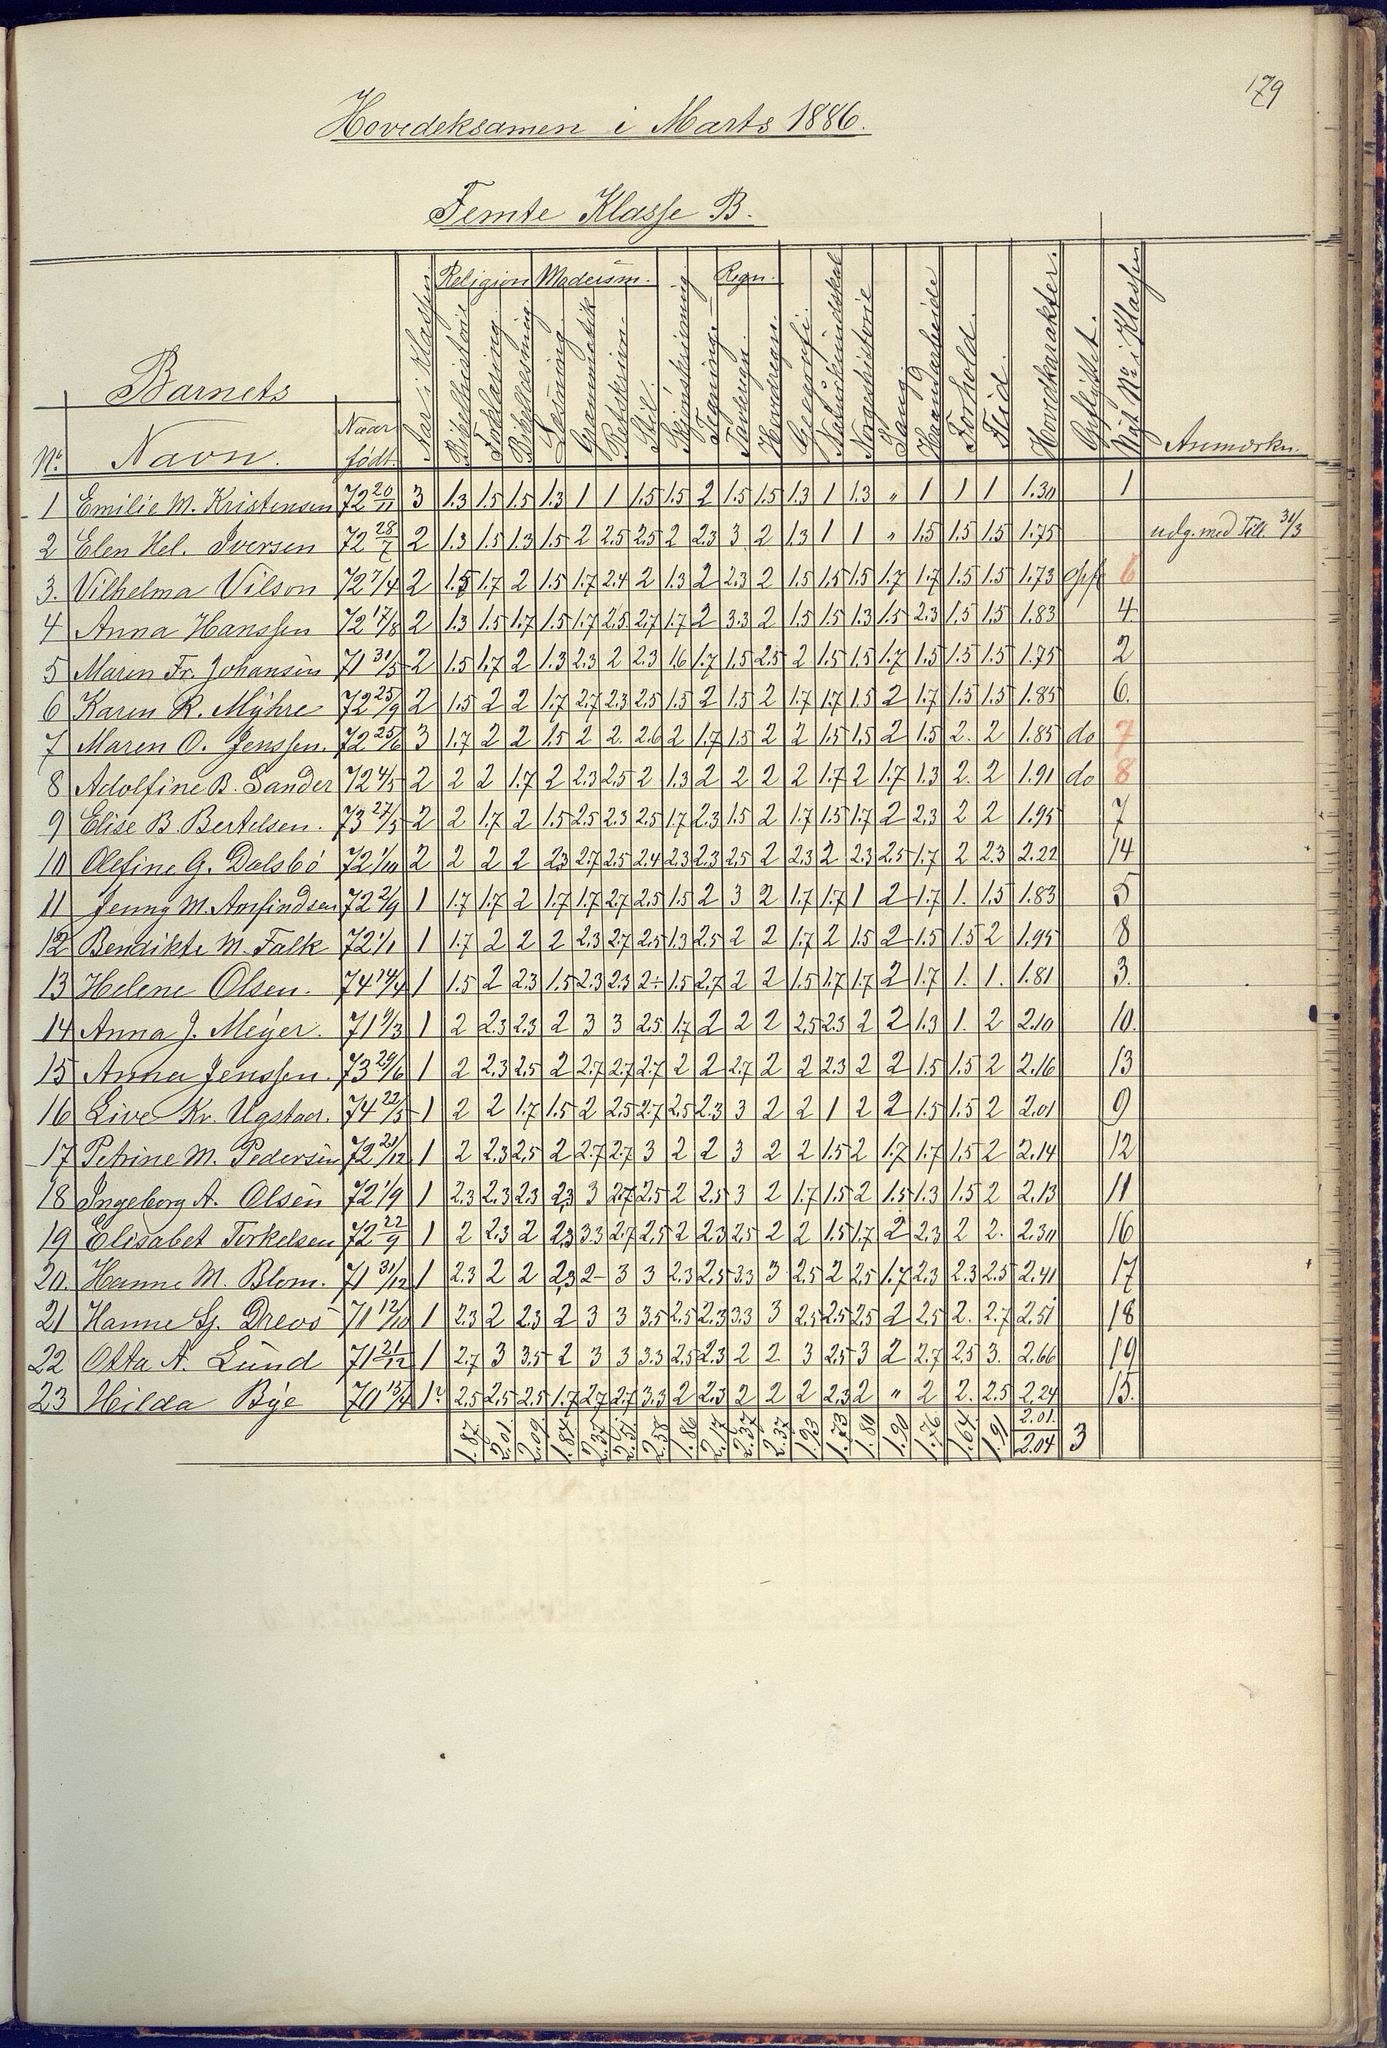 179
Hovedeksamen i Marts 1886.
Femte Klasse B.
No. Barnets Navn. Naar født. Aar i Klassen. Religion Bibelhistorie Forklaring. Bibellæsning Modersm. Læsning. Grammatik Retskrivn. Stil. Skjønskrivning Tegning. Regn. Tavleregn. Hovedregn. Geografi. Naturkundskab Norgeshistorie Sang. Haandarbeide Forhold. Flid. Hovedkarakter. Opflyttet. Nyt No. i Klassen Anmærkn.
1 Emilie M. Kristensen 72 20/11 3 1.3 1.5 1.5 1.3 1 1 1.5 1.5 2 1.5 1.5 1.3 1 1.3 " 1 1 1 1.30 1
2 Elen Hel. Iversen 72 28/7 2 1.3 1.5 1.3 1.5 2 2.5 2.5 2 2.3 3 2 1.3 1 1 " 1.5 1.5 1.5 1.75 udg. med Till. 31/3
3. Vilhelma Vilson 72 7/4 2 1.5 1.7 2 1.5 1.7 2.4 2 1.3 2 2.3 2 1.5 1.5 1.5 1.7 1.7 1.5 1.5 1.73 opfl 6
4 Anna Hanssen 72 17/8 2 1.3 1.5 1.7 1.5 1.7 2.5 2.7 1.7 2 3.3 2 1.5 1.5 1.3 1.5 2.3 1.5 1.5 1.83 4.
5 Maren Fr. Johansen 71 31/5 2 1.5 1.7 2 1.3 2.3 2 2.3 1.6 1.7 1.5 2.5 2 1.5 1.5 1.7 1.5 1.5 1.5 1.75 2
6 Karen R. Myhre 72 25/9 2 1.5 2 2 1.7 2.7 2.3 2.5 1.5 2 1.5 2 1.7 1.7 1.5 2 1.7 1.5 1.5 1.85 6.
7 Maren O. Jenssen. 72 25/6 3 1.7 2 2 1.5 2 2. 2.6 2 1.7 1.5 2 2 1.5 1.5 2 1.5 2. 2 1.85 do 7
8 Adolfine B. Sander 72 4/5 2 2 2 1.7 2 2.3 2.5 2 1.3 2 2 2 2 1.7 2 1.7 1.3 2. 2 1.91 do 8
9 Elise B. Bertelsen. 73 27/5 2 2 1.7 2 1.5 2.5 2.3 2.5 1.7 2.3 1.5 2 1.7 1.5 1.7 2 2.3 2 2 1.95 7
10 Olefine G. Dalsbö 72 1/10 2 2 2 2 2.3 2.7 2.5 2.4 2.3 2.3 2.5 2 2.3 2 2.3 2.5 1.7 2 2.3 2.22 14
11 Jenny M. Arfindsen 72 2/9 1 1.7 1.7 2 1.7 1.7 2.7 2.5 1.5 2 3 2 1.7 1.7 1 2 1.7 1. 1.5 1.83 5
12 Bendikte M. Falk 72 1/1 1 1.7 2 2 2 2.3 2.7 2.5 1.3 2.5 2 2 1.7 2 1.5 2 1.5 1.5 2 1.95 8
13 Helene Olsen. 74 14/4 1 1.5 2 2.3 1.5 2.3 2.3 2÷ 1.5 2.7 2 2 1.5 1.7 1.7 2 1.7 1. 1. 1.81 3.
14 Anna J. Meyer. 71 9/3 1 2 2.3 2.3 2 3 3 2.5 1.7 2 2 2 2.5 2.3 2 2 1.3 1. 2 2.10 10.
15 Anna Jenssen. 73 29/6 1 2 2.3 2.5 2 2.7 2.7 2.7 2 2 2.7 2 2 2.3 2 2 1.5 1.5 2 2.16 13
16 Live Kr. Ugstad. 74 22/5 1 2 2 1.7 1.5 2 2.5 2.7 2.5 2.3 3 2 2 1 2 2 1.5 1.5 2 2.01 9
17 Petrine M. Pedersen 72 21/12 1 2 2.3 2.5 2 2.7 2.7 3 2 2 3 2 2 1.5 2 1.7 1.7 1.5 2 2.14 12
18 Ingeborg A. Olsen 72 1/9 1 2.3 2.3 2.3 2.3 3 2.7 2.5 2 2.5 3 2 1.7 1.5 2 1.5 1.3 1.5 2 2.13 11
19 Elisabet Torkelsen 72 22/9 1 2 2.3 2 2.3 3.3 2.7 2.5 2 2.3 2.5 2 2 1.5 1.7 2 2.3 2 2. 2.30 16
20. Hanne M. Blom. 71 31/12 1 2.3 2 2 2.3 2- 3 3 2.3 2.5 3.3 3 2.5 2 2.5 1.7 2.3 2.3 2.5 2.41 17
21 Hanne Sj. Drevs 71 12/10 1 2.3 2 2.3 2 3 3 3.5 2.5 2.3 3.3 3 2.5 2.5 2.5 2 2.5 2. 2.7 2.51 18
22 Otta A. Lund 71 21/12 1 2.7 3 3.5 2 3 3 3.3 2.5 2.3 2 2 3 2.5 3 2 2.7 2.5 3. 2.66 19
23 Hilda Bye 70 15/4 1 2.5 2.5 2.5 1.7 2.7 2.7 3.3 2 2.3 2 2 2 2.3 2 " 2 2. 2.5 2.24 15.
1.87 2.01 2.09 1.84 2.35 2.51 2.58 1.86 2.17 2.37 2.37 1.93 1.73 1.80 1.90 1.76 1.64 1.91 2.01. 2.04 3